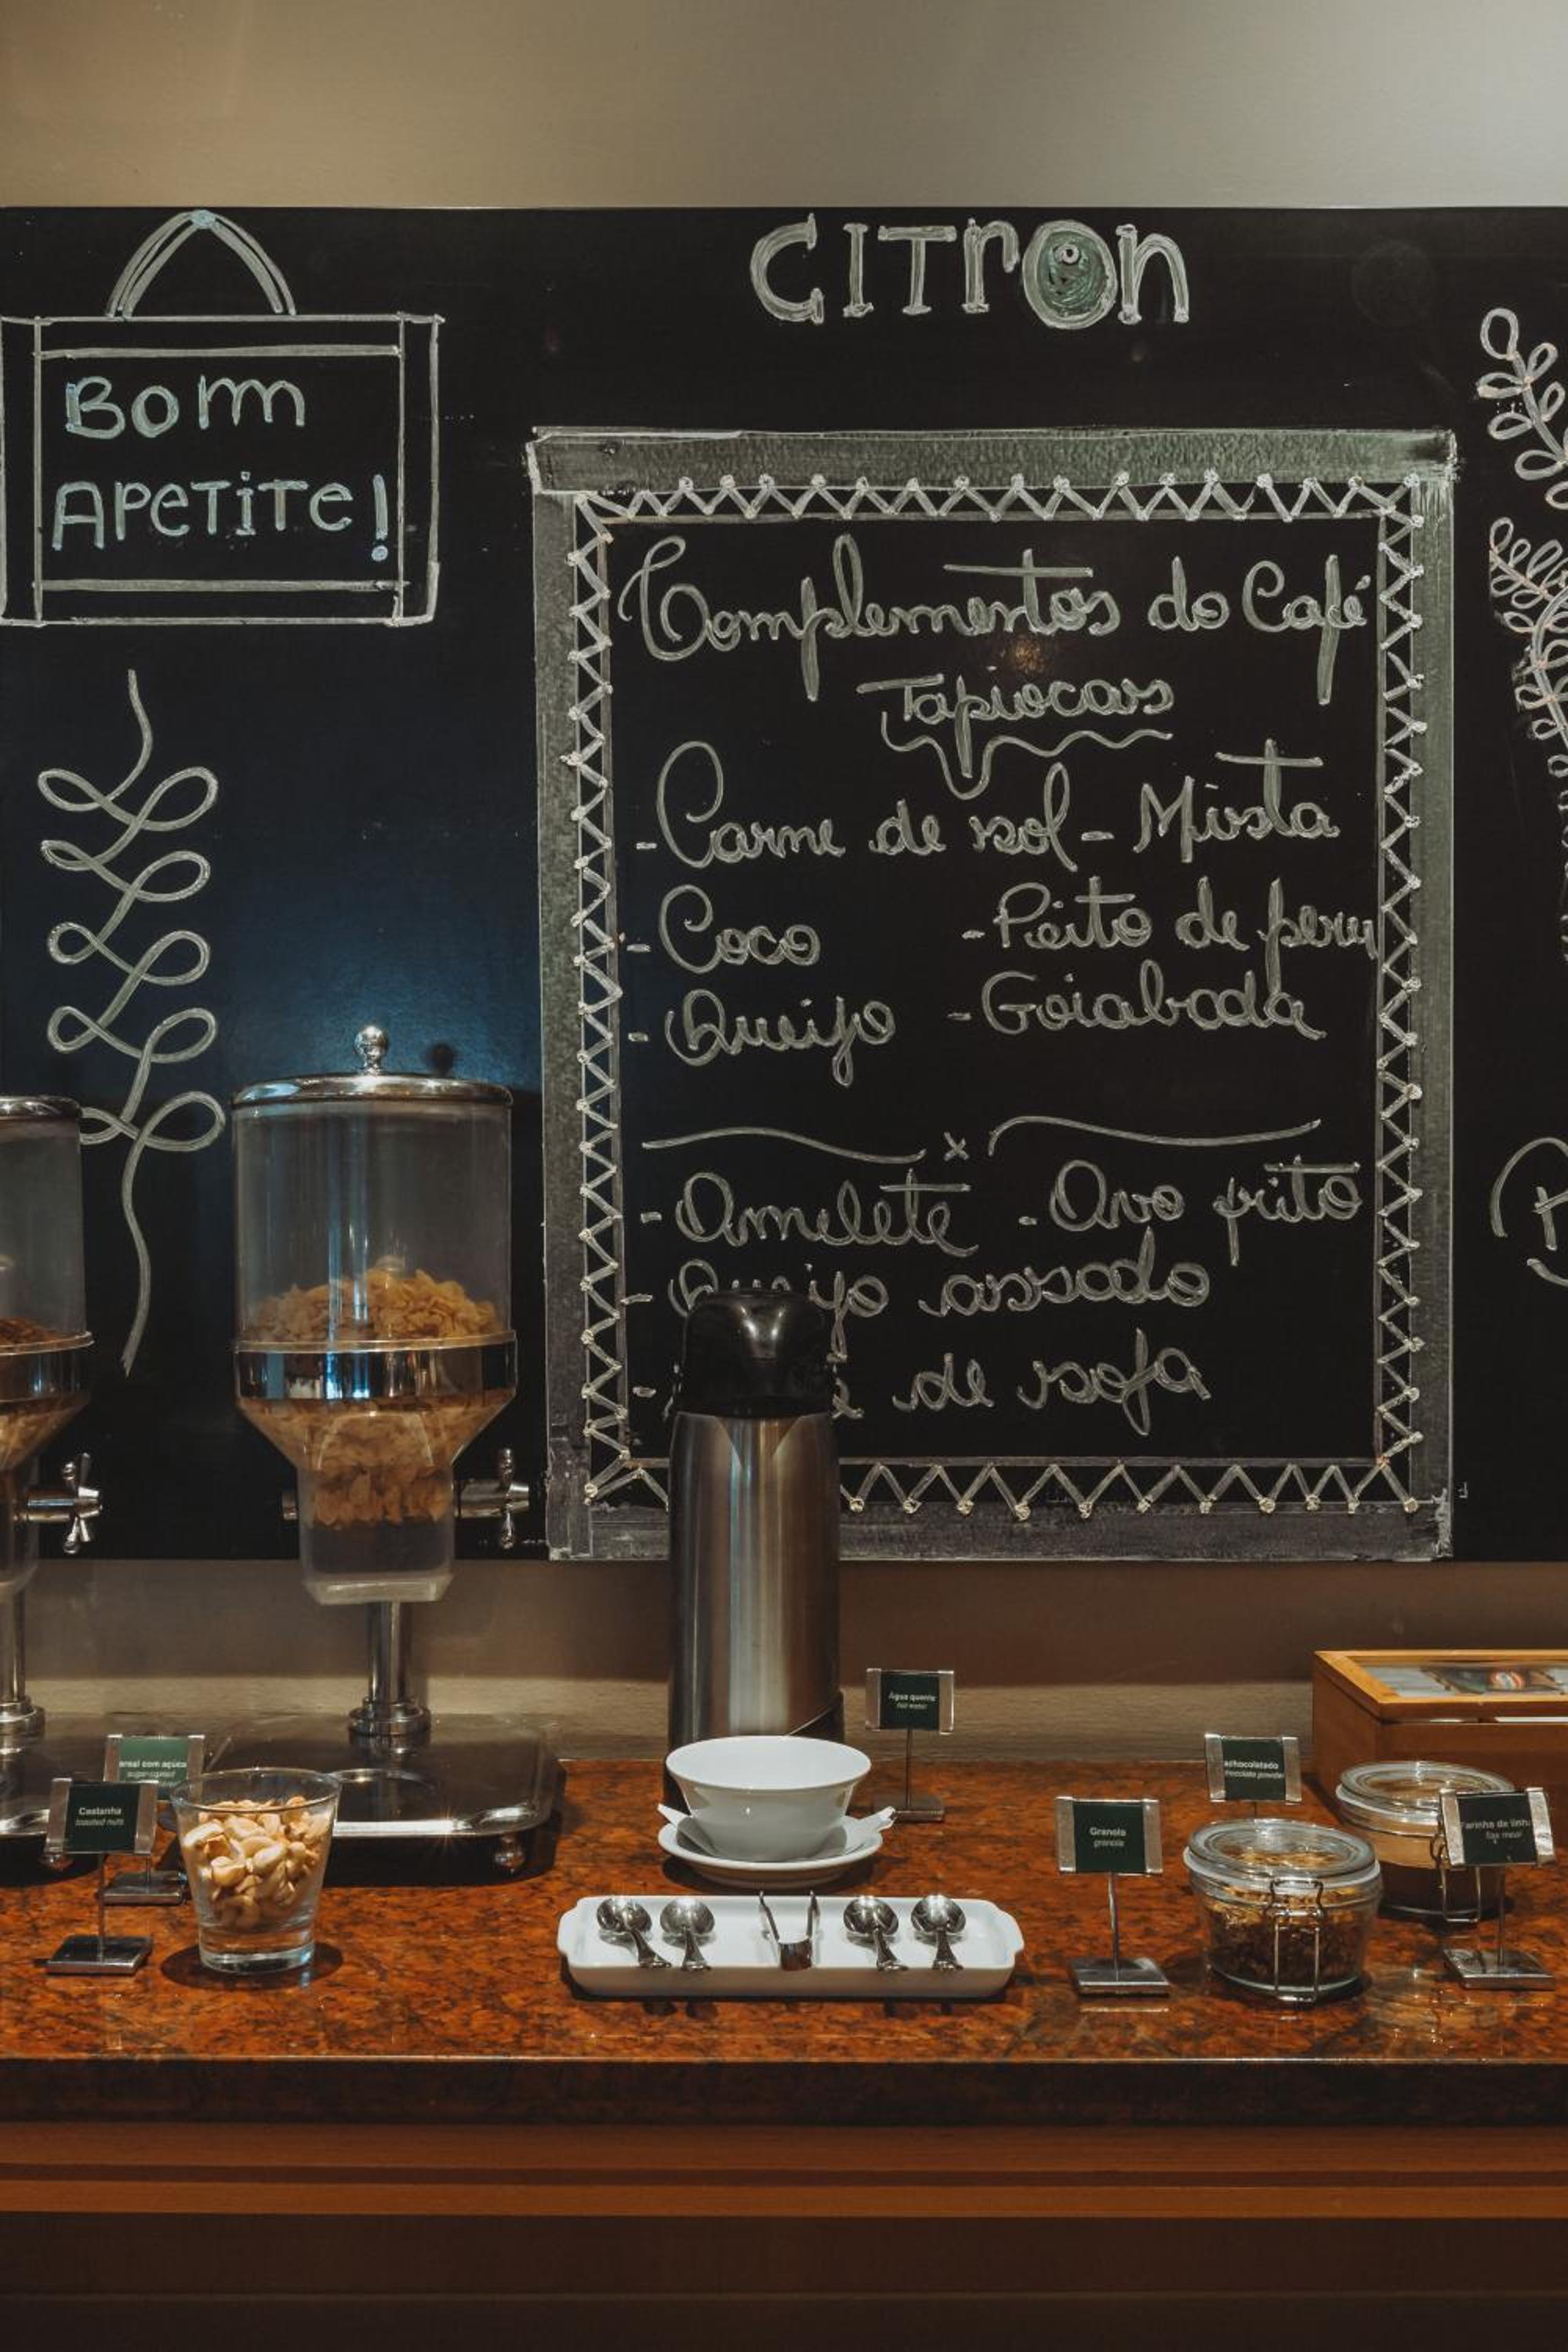 CITrOn
Bom
APeTiTe!
Complementos do Café
Tapiocas
-Carne de sol - Mista
-Coco -Peito de peru
-Queijo -Goiabada
x
-Omelete -Ovo frito
-Queijo assado
- de soja
Água quente
hot water
Castanha
toasted nuts
Granola
granola
chocolate powder
Farinha de linh
flax meal